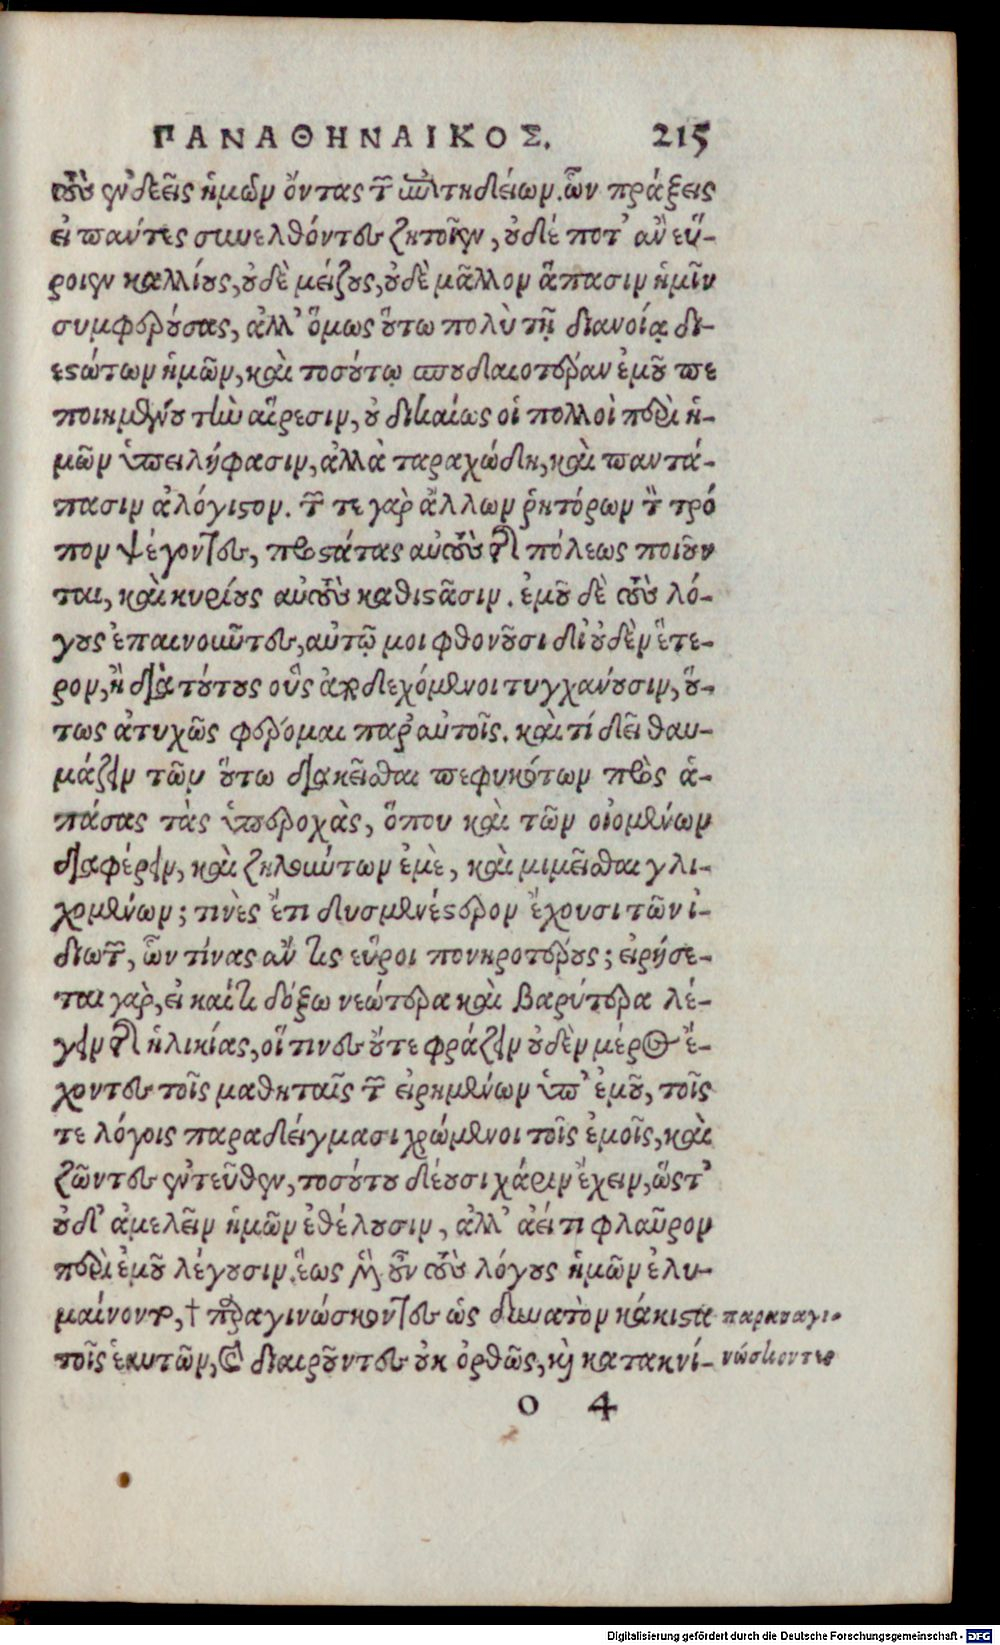 ΠΑΝΑΘΗΝΑΙΚΟΣ. 215
τοὺς ἐνδεεῖς ἡμῶν ὄντας τῶν ἐπιτηδείων. ὧν πράξεις
εἰ πάντες συνελθόντες ζητοῖεν, οὐδέ ποτ' ἂν εὕ-
ροιεν καλλίους, οὐδὲ μείζους, οὐδὲ μᾶλλον ἅπασιν ἡμῖν
συμφερούσας, ἀλλ' ὅμως οὕτω πολὺ τῇ διανοίᾳ δι-
εστώτων ἡμῶν, καὶ τοσούτῳ σπουδαιοτέραν ἐμοῦ πε
ποιημένου τὴν αἵρεσιν, οὐ δικαίως οἱ πολλοὶ περὶ ἡ-
μῶν ὑπειλήφασιν, ἀλλὰ ταραχώδη, καὶ παντά-
πασιν ἀλόγιστον. τῶν τε γὰρ ἄλλων ῥητόρων τὸν τρό
πον ψέγοντες, προστάτας αὐτοὺς τῆς πόλεως ποιοῦν
ται, καὶ κυρίους αὐτοὺς καθιστᾶσιν. ἐμοῦ δὲ τοὺς λό-
γους ἐπαινοῦντες, αὐτῷ μοι φθονοῦσι δι' οὐδὲν ἕτε-
ρον, ἢ διὰ τούτους οὓς ἀποδεχόμενοι τυγχάνουσιν, οὕ-
τως ἀτυχῶς φέρομαι παρ' αὐτοῖς. καὶ τί δεῖ θαυ-
μάζειν τῶν οὕτω διακεῖσθαι πεφυκότων πρὸς ἁ-
πάσας τὰς ὑπεροχὰς, ὅπου καὶ τῶν οἰομένων
διαφέρειν, καὶ ζηλούντων ἐμὲ, καὶ μιμεῖσθαι γλι-
χομένων; τινὲς ἔτι δυσμενέστερον ἔχουσι τῶν ἰ-
διωτῶν, ὧν τίνας ἄν τις εὕροι πονηροτέρους; εἰρήσε-
ται γὰρ, εἰ καί τι δόξω νεώτερα καὶ βαρύτερα λέ-
γειν τῆς ἡλικίας, οἵ τινες οὔτε φράζειν οὐδὲν μέρος ἔ-
χοντες τοῖς μαθηταῖς τῶν εἰρημένων ὑπ' ἐμοῦ, τοῖς
τε λόγοις παραδείγμασι χρώμενοι τοῖς ἐμοῖς, καὶ
ζῶντες ἐντεῦθεν, τοσούτου δέουσι χάριν ἔχειν, ὥστ'
οὐδ' ἀμελεῖν ἡμῶν ἐθέλουσιν, ἀλλ' ἀεί τι φλαῦρον
περὶ ἐμοῦ λέγουσιν. ἕως μὲν οὖν τοὺς λόγους ἡμῶν ἐλυ-
μαίνοντο, † παραγινώσκοντες ὡς δυνατὸν κάκιστα
παραναγι-
τοῖς ἑαυτῶν, καὶ διαιροῦντες οὐκ ὀρθῶς, καὶ κατακνί-
νώσκοντες
ο 4
Digitalisierung gefördert durch die Deutsche Forschungsgemeinschaft - DFG